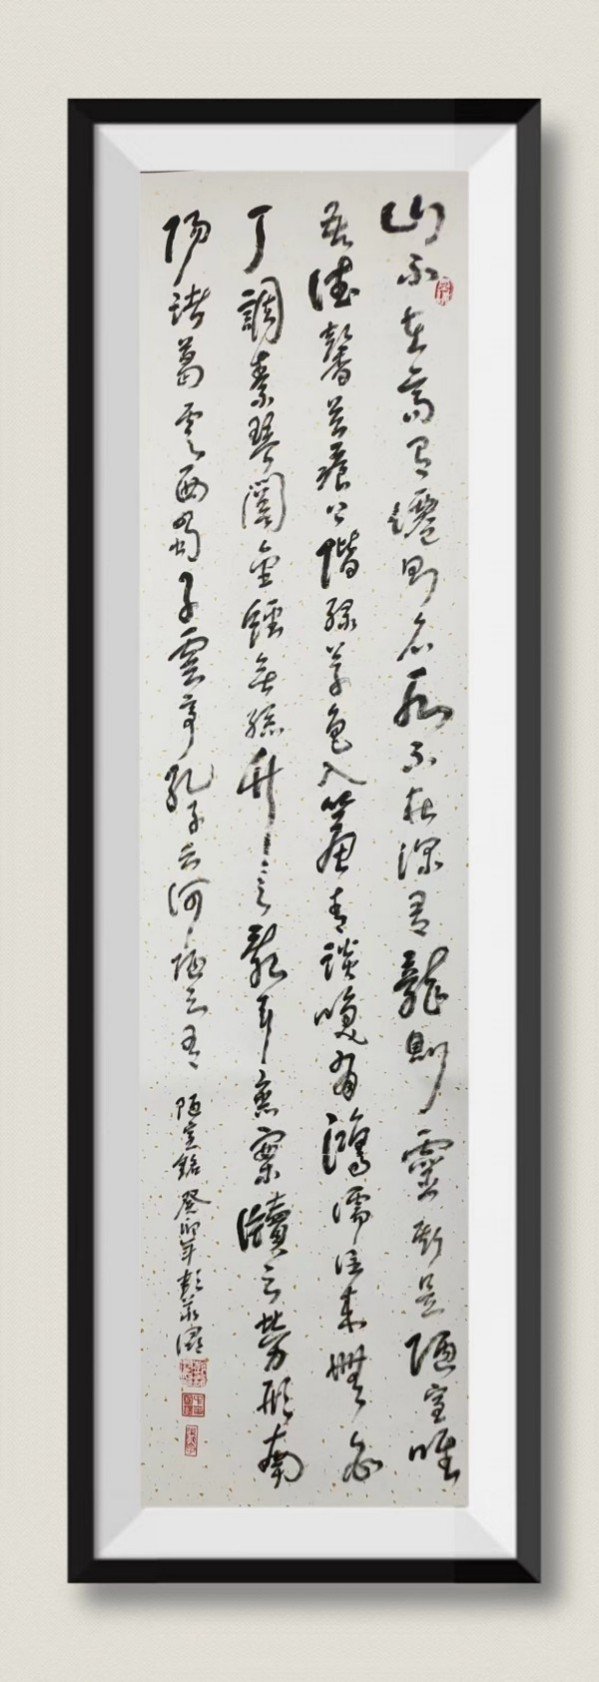 山不在高有僊則名水不在深有龍則靈斯是陋室唯
吾德馨苔痕上階緑草色入簾青談咲有鴻儒往來無白
丁調素琴閱金經無絲竹之亂耳無案牘之勞形南
陽諸葛廬西蜀子雲亭孔子云何陋之有 陋室銘 癸卯年彭